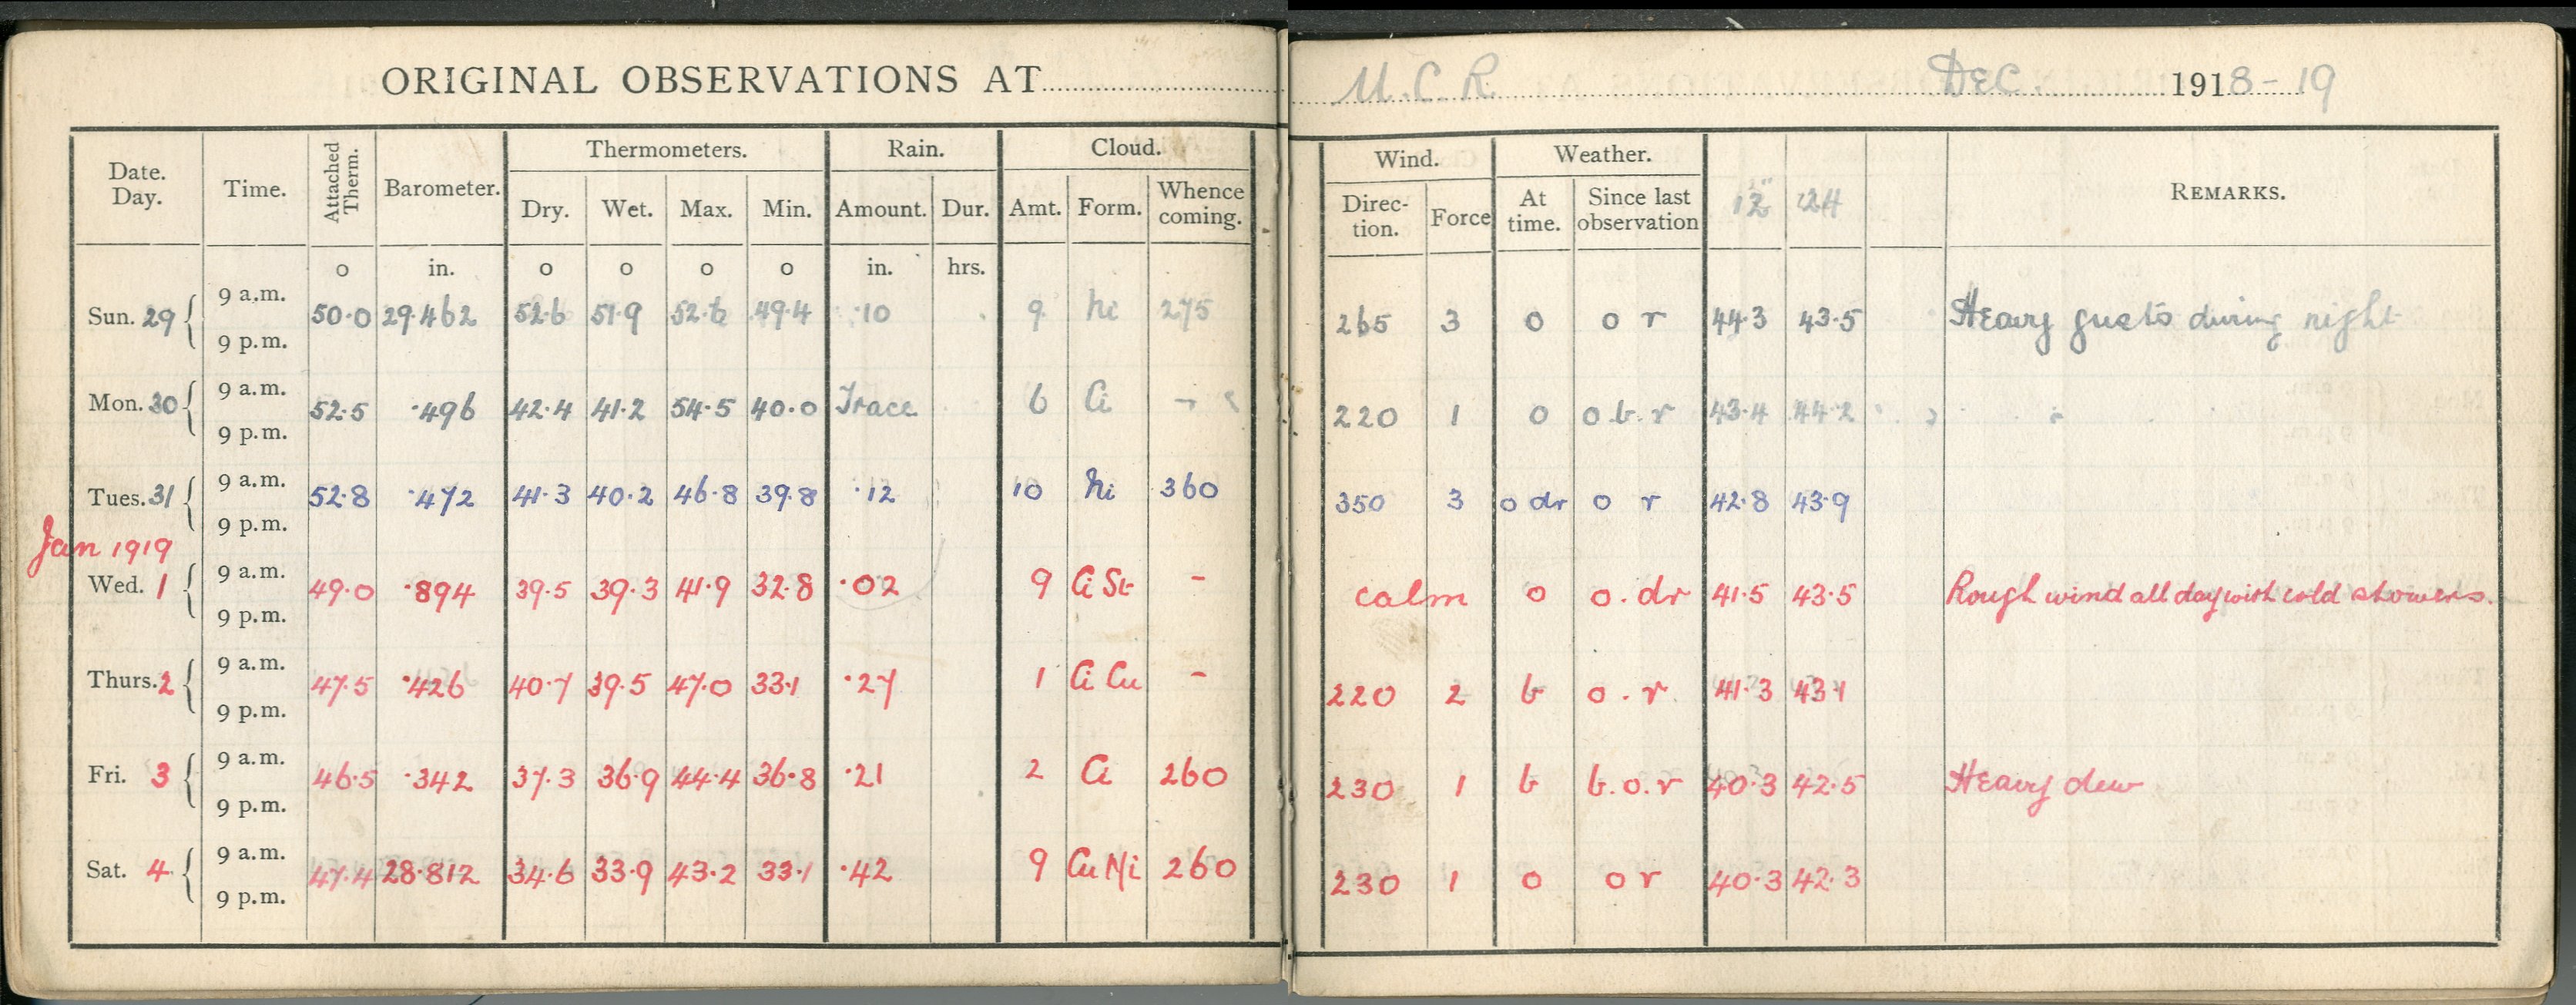 ORIGINAL OBSERVATIONS AT U.C.R DEC 1918-19
Thermometers. Rain. Cloud. Wind. Weather.
Date. Day. Time. Attached Therm. Barometer. Dry. Wet. Max. Min. Amount. Dur. Amt. Form. Whence coming. Direc- tion. Force At time. Since last observation 12" 24 REMARKS.
o in. o o o o in. hrs.
Sun. 29 9 a.m. 50.0 29.462 52.6 51.9 52.6 49.4 .10 9 Ni 275 265 3 o o r 44.3 43.5 Heavy gusts during night
9 p.m.
Mon. 30 9 a.m. 52.5 .496 42.4 41.2 54.5 40.0 Trace 6 Ci 220 1 o o.b.r 43.4 44.2
9 p.m.
Tues. 31 9 a.m. 52.8 .472 41.3 40.2 46.8 39.8 .12 10 Ni 360 350 3 o dr o r 42.8 43.9
9 p.m.
Jan 1919
Wed. 1 9 a.m. 49.0 .894 39.5 39.3 41.9 32.8 .02 9 Ci St - calm o o.dr 41.5 43.5 Rough wind all day with cold showers.
9 p.m.
Thurs. 2 9 a.m. 47.5 .426 40.7 39.5 47.0 33.1 .27 1 Ci Cu - 220 2 b o.r 41.3 43.1
9 p.m.
Fri. 3 9 a.m. 46.5 .342 37.3 36.9 44.4 36.8 .21 2 Ci 260 230 1 b b.o.r 40.3 42.5 Heavy dew
9 p.m.
Sat. 4 9 a.m. 47.4 28.812 34.6 33.9 43.2 33.1 .42 9 Cu Ni 260 230 1 o o r 40.3 42.3
9 p.m.